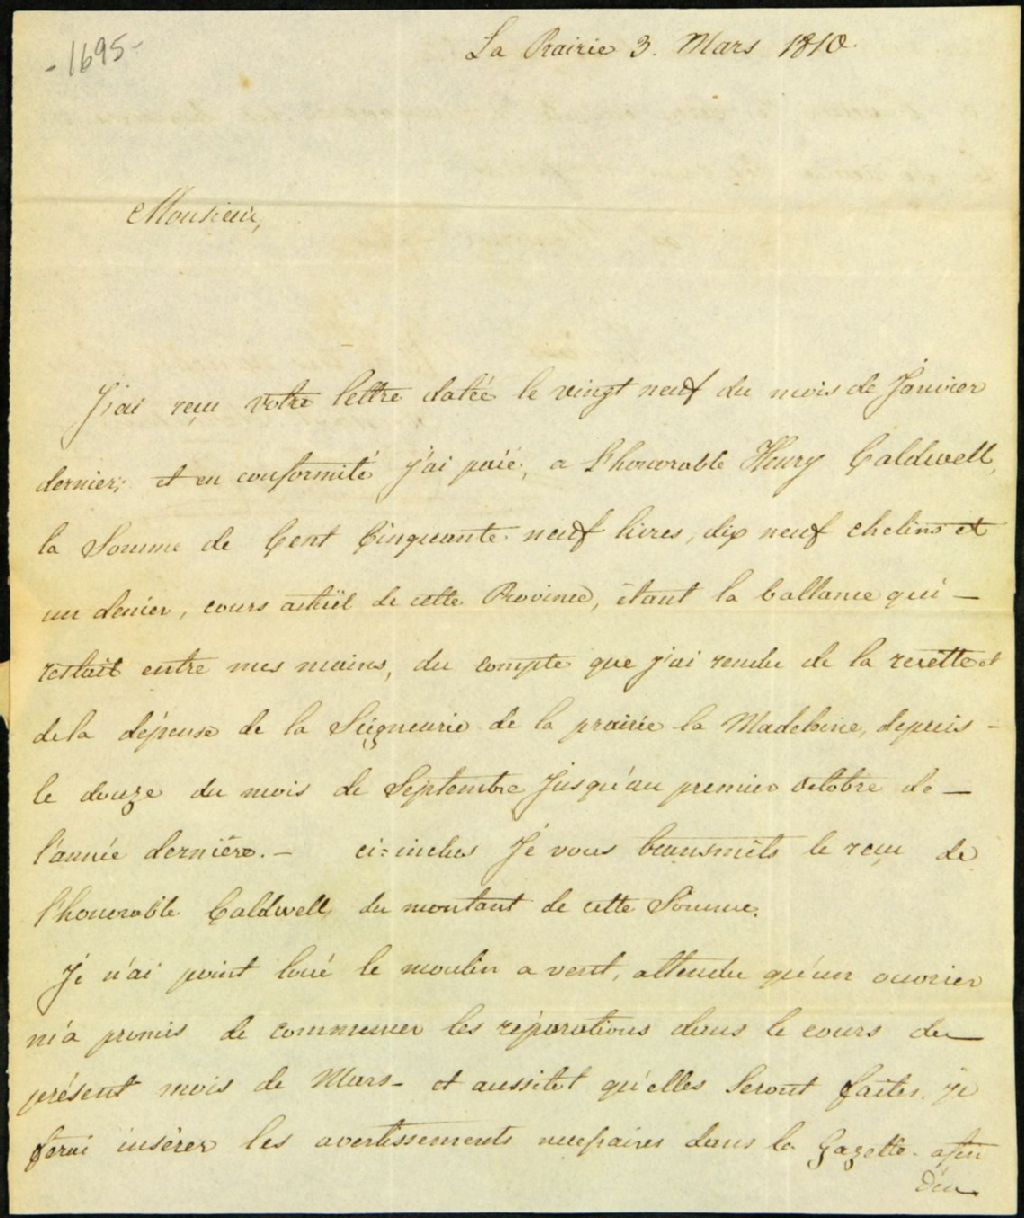 -1695-
La Prairie 3. Mars 1810.
Monsieur,
J'ai reçu votre lettre datée le vingt neuf du mois de Janvier
dernier; et en conformité j'ai païé, a l'honorable Henry Caldwell,
la Somme de Cent Cinquante neuf livres, dix neuf chelins et
un denier, cours actüel de cette Province, étant la ballance qui
restait entre mes mains, du compte que j'ai rendu de la recette et
de la dépense de la Seigneurie de la prairie la Madeleine, depuis
le douze du mois de Septembre Jusqu'au premier octobre de
l'année dernière. — ci=inclus Je vous transmets le reçu de
l'honorable Caldwell du montant de cette Somme.
Je n'ai point loué le moulin a vent, attendu qu'un ouvrier
m'a promis de commencer les réparations dans le cours du
présent mois de Mars - et aussitot qu'elles Seront faites je
ferai insérer les avertissements necessaires dans la Gazette. afin
d'en